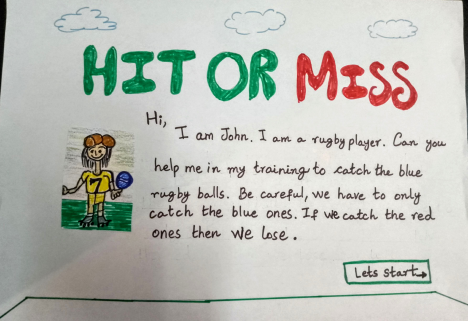 HIT OR MISS
Hi,
I am John. I am a rugby player. Can you
help me in my training to catch the blue
rugby balls. Be careful, we have to only
catch the blue ones. If we catch the red
ones then we lose.
7
Lets start